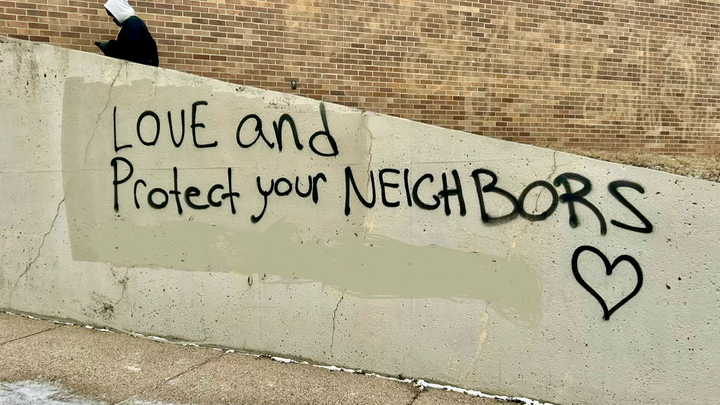 LOVE and
Protect your NEIGHBORS